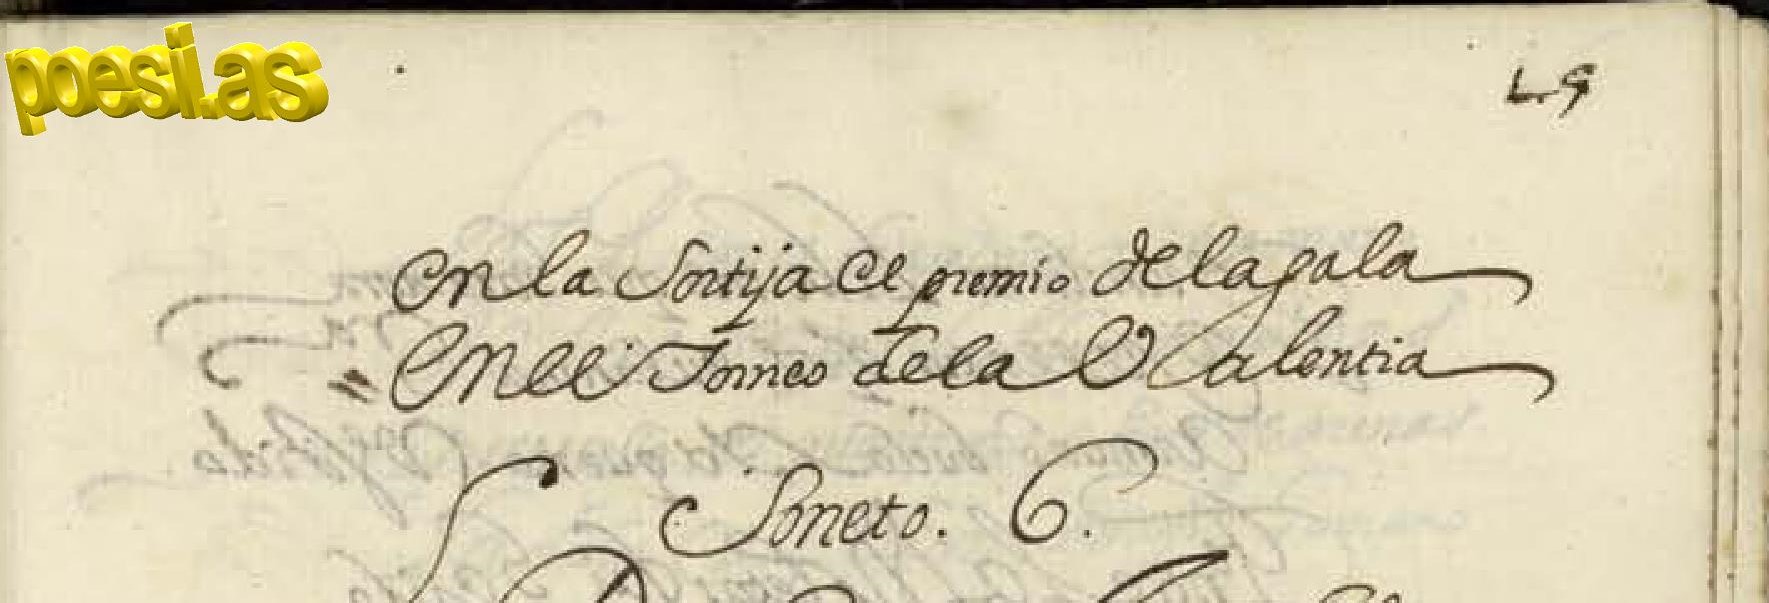 poesi.as
49
en la Sortija el premio de la gala
en el Torneo de la Valentia
Soneto. 6.